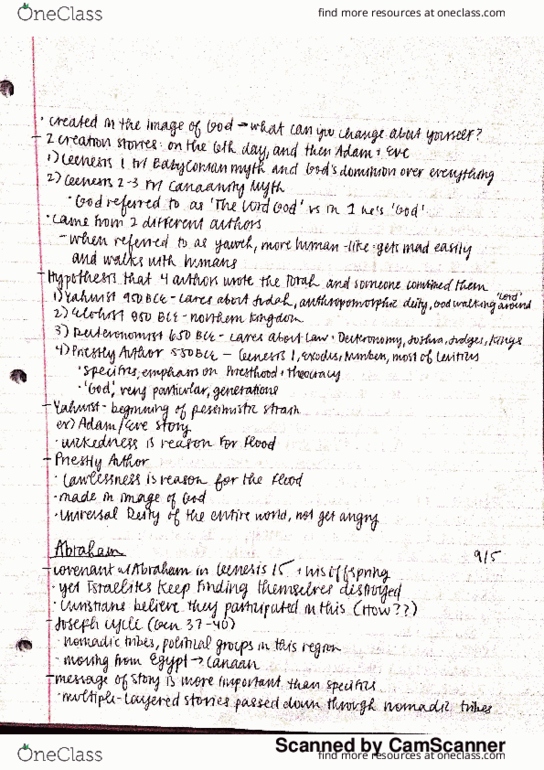 OneClass
find more resources at oneclass.com
· created in the image of God → what can you change about yourself?
- 2 creation stories: on the 6th day, and then Adam + Eve
1) Genesis 1 w/ Babylonian myth and God's dominion over everything
2) Genesis 2-3 w/ Canaanity Myth
· God referred to as 'The Lord God' vs in 1 he's 'God'
· Came from 2 different authors
- when referred to as yaweh, more human-like: gets mad easily
and walks with humans
- Hypothesis that 4 authors wrote the Torah and someone combined them
1) Yahwist 950 BCE - cares about Judah, anthropomorphic deity, God walking around 'Lord'
2) Elohist 850 BCE - northern kingdom
3) Deuteronomist 650 BCE - cares about law + Deuteronomy, Joshua, Judges, Kings
4) Priestly Author 550 BCE - Genesis 1, Exodus, Numbers, most of Leviticus
· specifics, emphasis on Priesthood + theocracy
· 'God', very particular, generations
- Yahwist - beginning of pessimistic strain
ex) Adam/Eve story
· wickedness is reason for flood
- Priestly Author
· Lawlessness is reason for the flood
· made in image of God
· universal Deity of the entire world, not get angry
Abraham 9/5
- covenant w/ Abraham in Genesis 15 + his offspring
· yet Israelites keep finding themselves destroyed
· Christians believe they participated in this (How??)
- Joseph cycle (Gen 37-40)
· nomadic tribes, political groups in this region
· moving from Egypt → Canaan
- message of story is more important than specifics
· multiple-layered stories passed down through nomadic tribes
Scanned by CamScanner
OneClass
find more resources at oneclass.com